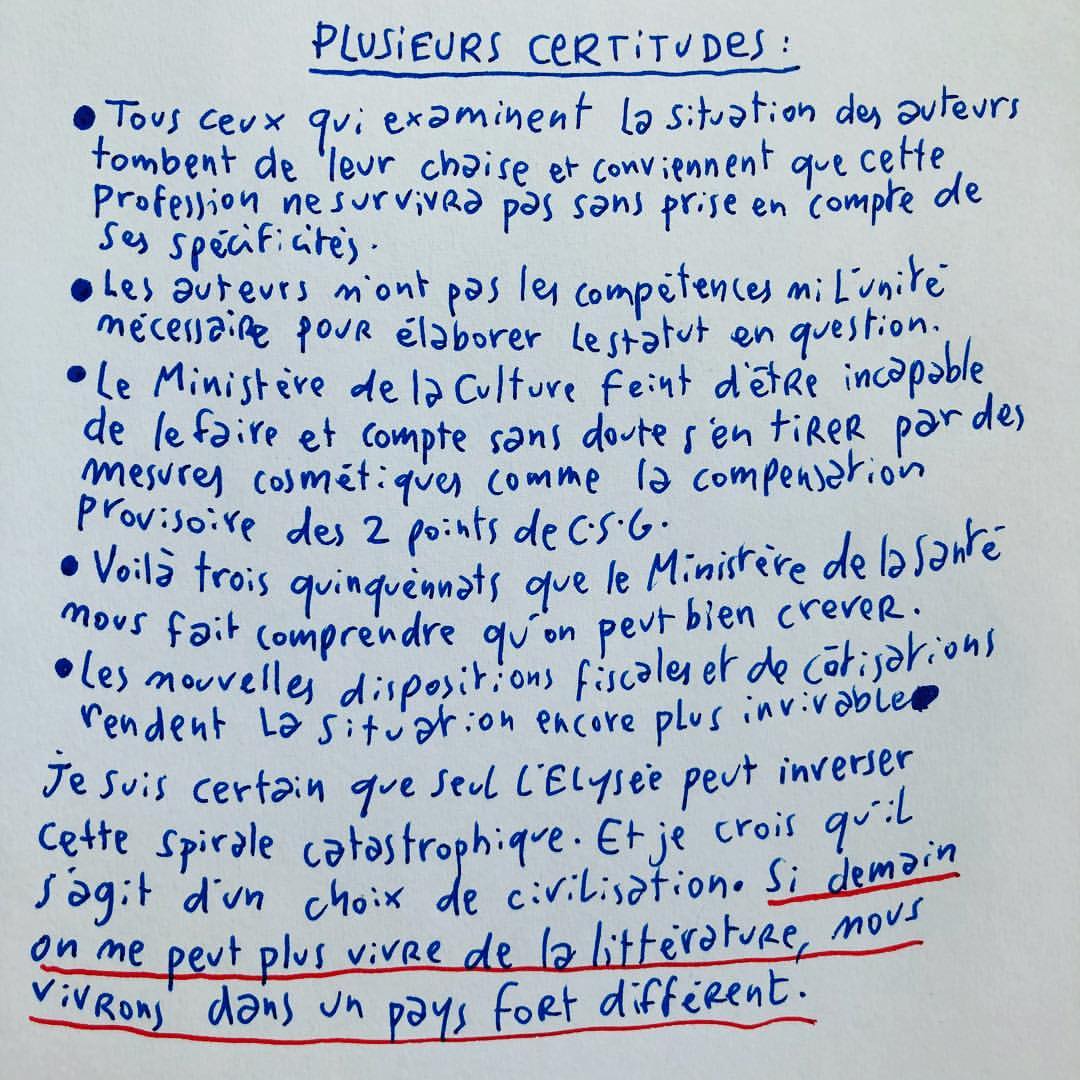 PLUSIEURS CERTITUDES :
• Tous ceux qui examinent la situation des auteurs
tombent de leur chaise et conviennent que cette
profession ne survivra pas sans prise en compte de
ses spécificités.
• Les auteurs n'ont pas les compétences ni l'unité
nécessaire pour élaborer le statut en question.
• Le Ministère de la Culture feint d'être incapable
de le faire et compte sans doute s'en tirer par des
mesures cosmétiques comme la compensation
provisoire des 2 points de C.S.G.
• Voilà trois quinquennats que le Ministère de la Santé
nous fait comprendre qu'on peut bien crever.
• Les nouvelles dispositions fiscales et de côtisations
rendent la situation encore plus invivable.
Je suis certain que seul l'Elysée peut inverser
cette spirale catastrophique. Et je crois qu'il
s'agit d'un choix de civilisation. Si demain
on ne peut plus vivre de la littérature, nous
vivrons dans un pays fort différent.